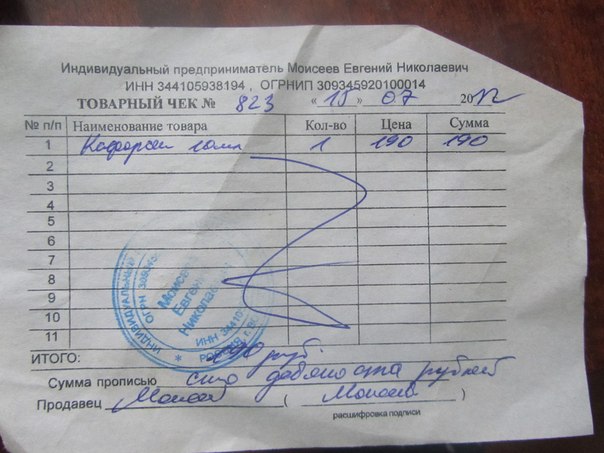 Индивидуальный предприниматель Моисеев Евгений Николаевич
ИНН 344105938194 , ОГРНИП 309345920100014
ТОВАРНЫЙ ЧЕК № 823 « 15 » 07 2012
№ п/п Наименование товара Кол-во Цена Сумма
1 1 190 190
2
3
4
5
6
7
8
9
10
11
ИНДИВИДУАЛЬНЫЙ
ОГРН
Моисеев
Евгений
Николаевич
ИНН 34410
ИТОГО: 190 руб.
Сумма прописью сто девяносто рублей
Продавец Моисеев ( Моисеев )
расшифровка подписи